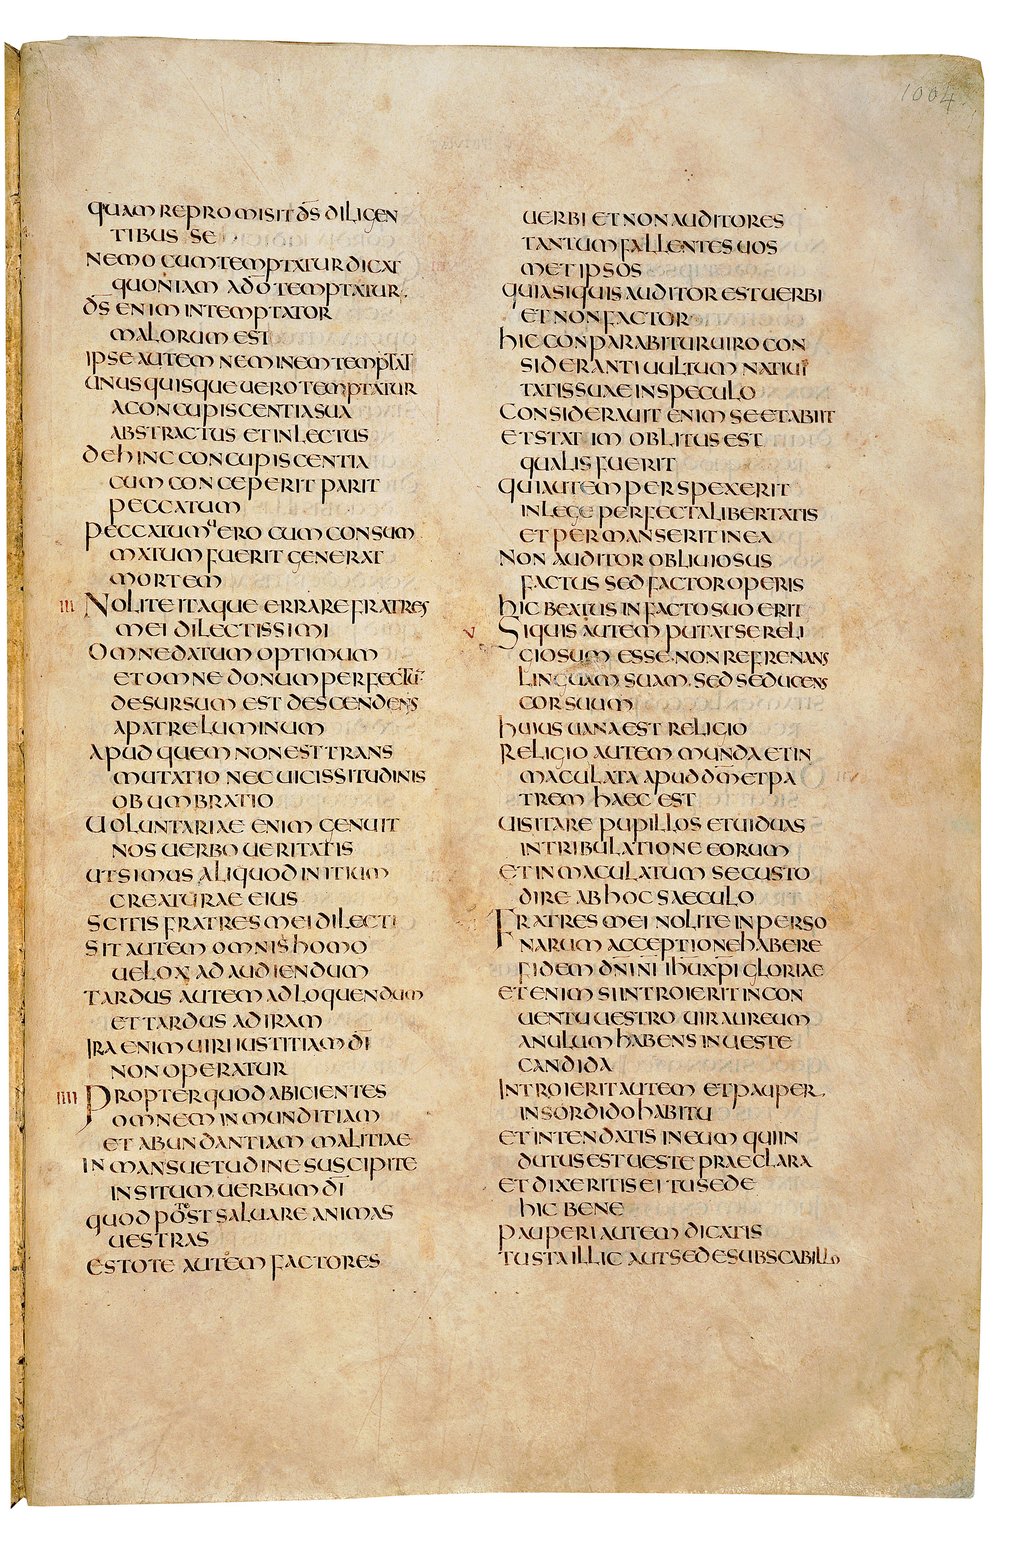 1004
QUAM REPROMISIT D̅S̅ DILIGEN
TIBUS SE
NEMO CUM TEMPTATUR DICAT
QUONIAM A D̅O̅ TEMPTATUR.
D̅S̅ ENIM INTEMPTATOR
MALORUM EST
IPSE AUTEM NEMINEM TEMPTAT
UNUSQUISQUE UERO TEMPTATUR
A CONCUPISCENTIA SUA
ABSTRACTUS ET INLECTUS
DEHINC CONCUPISCENTIA
CUM CONCEPERIT PARIT
PECCATUM
PECCATUM UERO CUM CONSUM
MATUM FUERIT GENERAT
MORTEM
III NOLITE ITAQUE ERRARE FRATRES
MEI DILECTISSIMI
OMNE DATUM OPTIMUM
ET OMNE DONUM PERFECTU̅
DESURSUM EST DESCENDENS
A PATRE LUMINUM
APUD QUEM NON EST TRANS
MUTATIO NEC UICISSITUDINIS
OBUMBRATIO
UOLUNTARIAE ENIM GENUIT
NOS UERBO UERITATIS
UT SIMUS ALIQUOD INITIUM
CREATURAE EIUS
SCITIS FRATRES MEI DILECTI
SIT AUTEM OMNIS HOMO
UELOX AD AUDIENDUM
TARDUS AUTEM AD LOQUENDUM
ET TARDUS AD IRAM
IRA ENIM UIRI IUSTITIAM D̅I̅
NON OPERATUR
IIII PROPTER QUOD ABICIENTES
OMNEM INMUNDITIAM
ET ABUNDANTIAM MALITIAE
IN MANSUETUDINE SUSCIPITE
INSITUM UERBUM D̅I̅
QUOD POTEST SALUARE ANIMAS
UESTRAS
ESTOTE AUTEM FACTORES
UERBI ET NON AUDITORES
TANTUM FALLENTES UOS
MET IPSOS
QUIA SI QUIS AUDITOR EST UERBI
ET NON FACTOR
HIC CONPARABITUR UIRO CON
SIDERANTI UULTUM NATIUI
TATIS SUAE IN SPECULO
CONSIDERAUIT ENIM SE ET ABIIT
ET STATIM OBLITUS EST
QUALIS FUERIT
QUI AUTEM PERSPEXERIT
IN LEGE PERFECTA LIBERTATIS
ET PERMANSERIT IN EA
NON AUDITOR OBLIUIOSUS
FACTUS SED FACTOR OPERIS
HIC BEATUS IN FACTO SUO ERIT
V SI QUIS AUTEM PUTAT SE RELI
GIOSUM ESSE NON REFRENANS
LINGUAM SUAM. SED SEDUCENS
COR SUUM
HUIUS UANA EST RELIGIO
RELIGIO AUTEM MUNDA ET IN
MACULATA APUD D̅M̅ ET PA
TREM HAEC EST
UISITARE PUPILLOS ET UIDUAS
IN TRIBULATIONE EORUM
ET INMACULATUM SE CUSTO
DIRE AB HOC SAECULO
FRATRES MEI NOLITE IN PERSO
NARUM ACCEPTIONE HABERE
FIDEM D̅N̅I̅ N̅I̅ I̅H̅U̅ X̅P̅I̅ GLORIAE
ETENIM SI INTROIERIT IN CON
UENTU UESTRO UIR AUREUM
ANULUM HABENS IN UESTE
CANDIDA
INTROIERIT AUTEM ET PAUPER
IN SORDIDO HABITU
ET INTENDATIS IN EUM QUI IN
DUTUS EST UESTE PRAECLARA
ET DIXERITIS EI TU SEDE
HIC BENE
PAUPERI AUTEM DICATIS
TU STA ILLIC AUT SEDE SUB SCABILLO